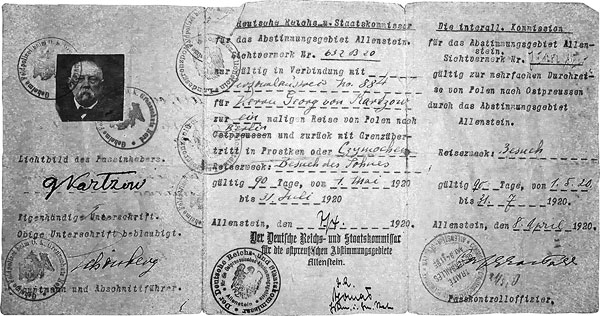 Lichtbild des Passinhabers.
G Kartzow
Eigenhändige Unterschrift.
Obige Unterschrift beglaubigt.
Hauptmann und Abschnittführer.
Deutsche Reichs u. Staatskommissar
für das Abstimmungsgebiet Allenstein.
Sichtvermerk Nr. 632 B 20
nur gültig in Verbindung mit
No 884
für Herrn Georg von Kartzow
zur ein maligen Reise von Polen nach
Berlin
Ostpreussen und zurück mit Grenzüber-
tritt in Prostken oder Czymochen
Reisezweck: Besuch des Sohnes
gültig 90 Tage, vom 1. Mai 1920
bis 31 Juli 1920
Allenstein, den 7/4. 1920.
Der Deutsche Reichs- und Staatskommissar
für die ostpreußischen Abstimmungsgebiete
Allenstein.
Die interall. Kommission
für das Abstimmungsgebiet Allen-
stein.
Sichtvermerk Nr.
gültig zur mehrfachen Durchrei-
se von Polen nach Ostpreussen
durch das Abstimmungsgebiet
Allenstein.
Reisezweck: Besuch
gültig 90 Tage, vom 1.5.20
bis 31. 7 1920.
Allenstein, den 8. April 1920.
Passkontrolloffizier.